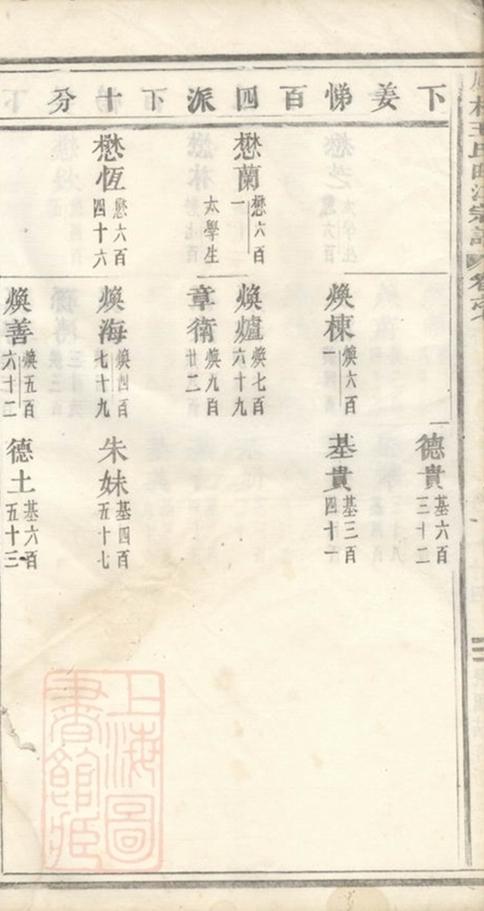 下姜悌百四派下十分
懋蘭 懋六百一 太學生
懋恆 懋六百四十六
煥棟 煥六百一
煥爐 煥七百六十九
章衛 煥九百廿二
煥海 煥四百七十九
煥善 煥五百六十二
德貴 基六百三十二
基貴 基三百四十一
朱妹 基四百五十七
德土 基六百五十三
上海圖
書館藏